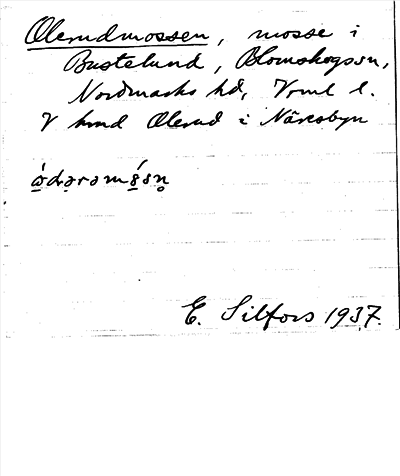 Olerudmossen, mosse i
Bustelund, Blomskogs sn,
Nordmarks hd, Vrml l.
V hmd Olerud i Näresbyn
ǻdərəmǫ́sn̥
E. Silfors 1937.